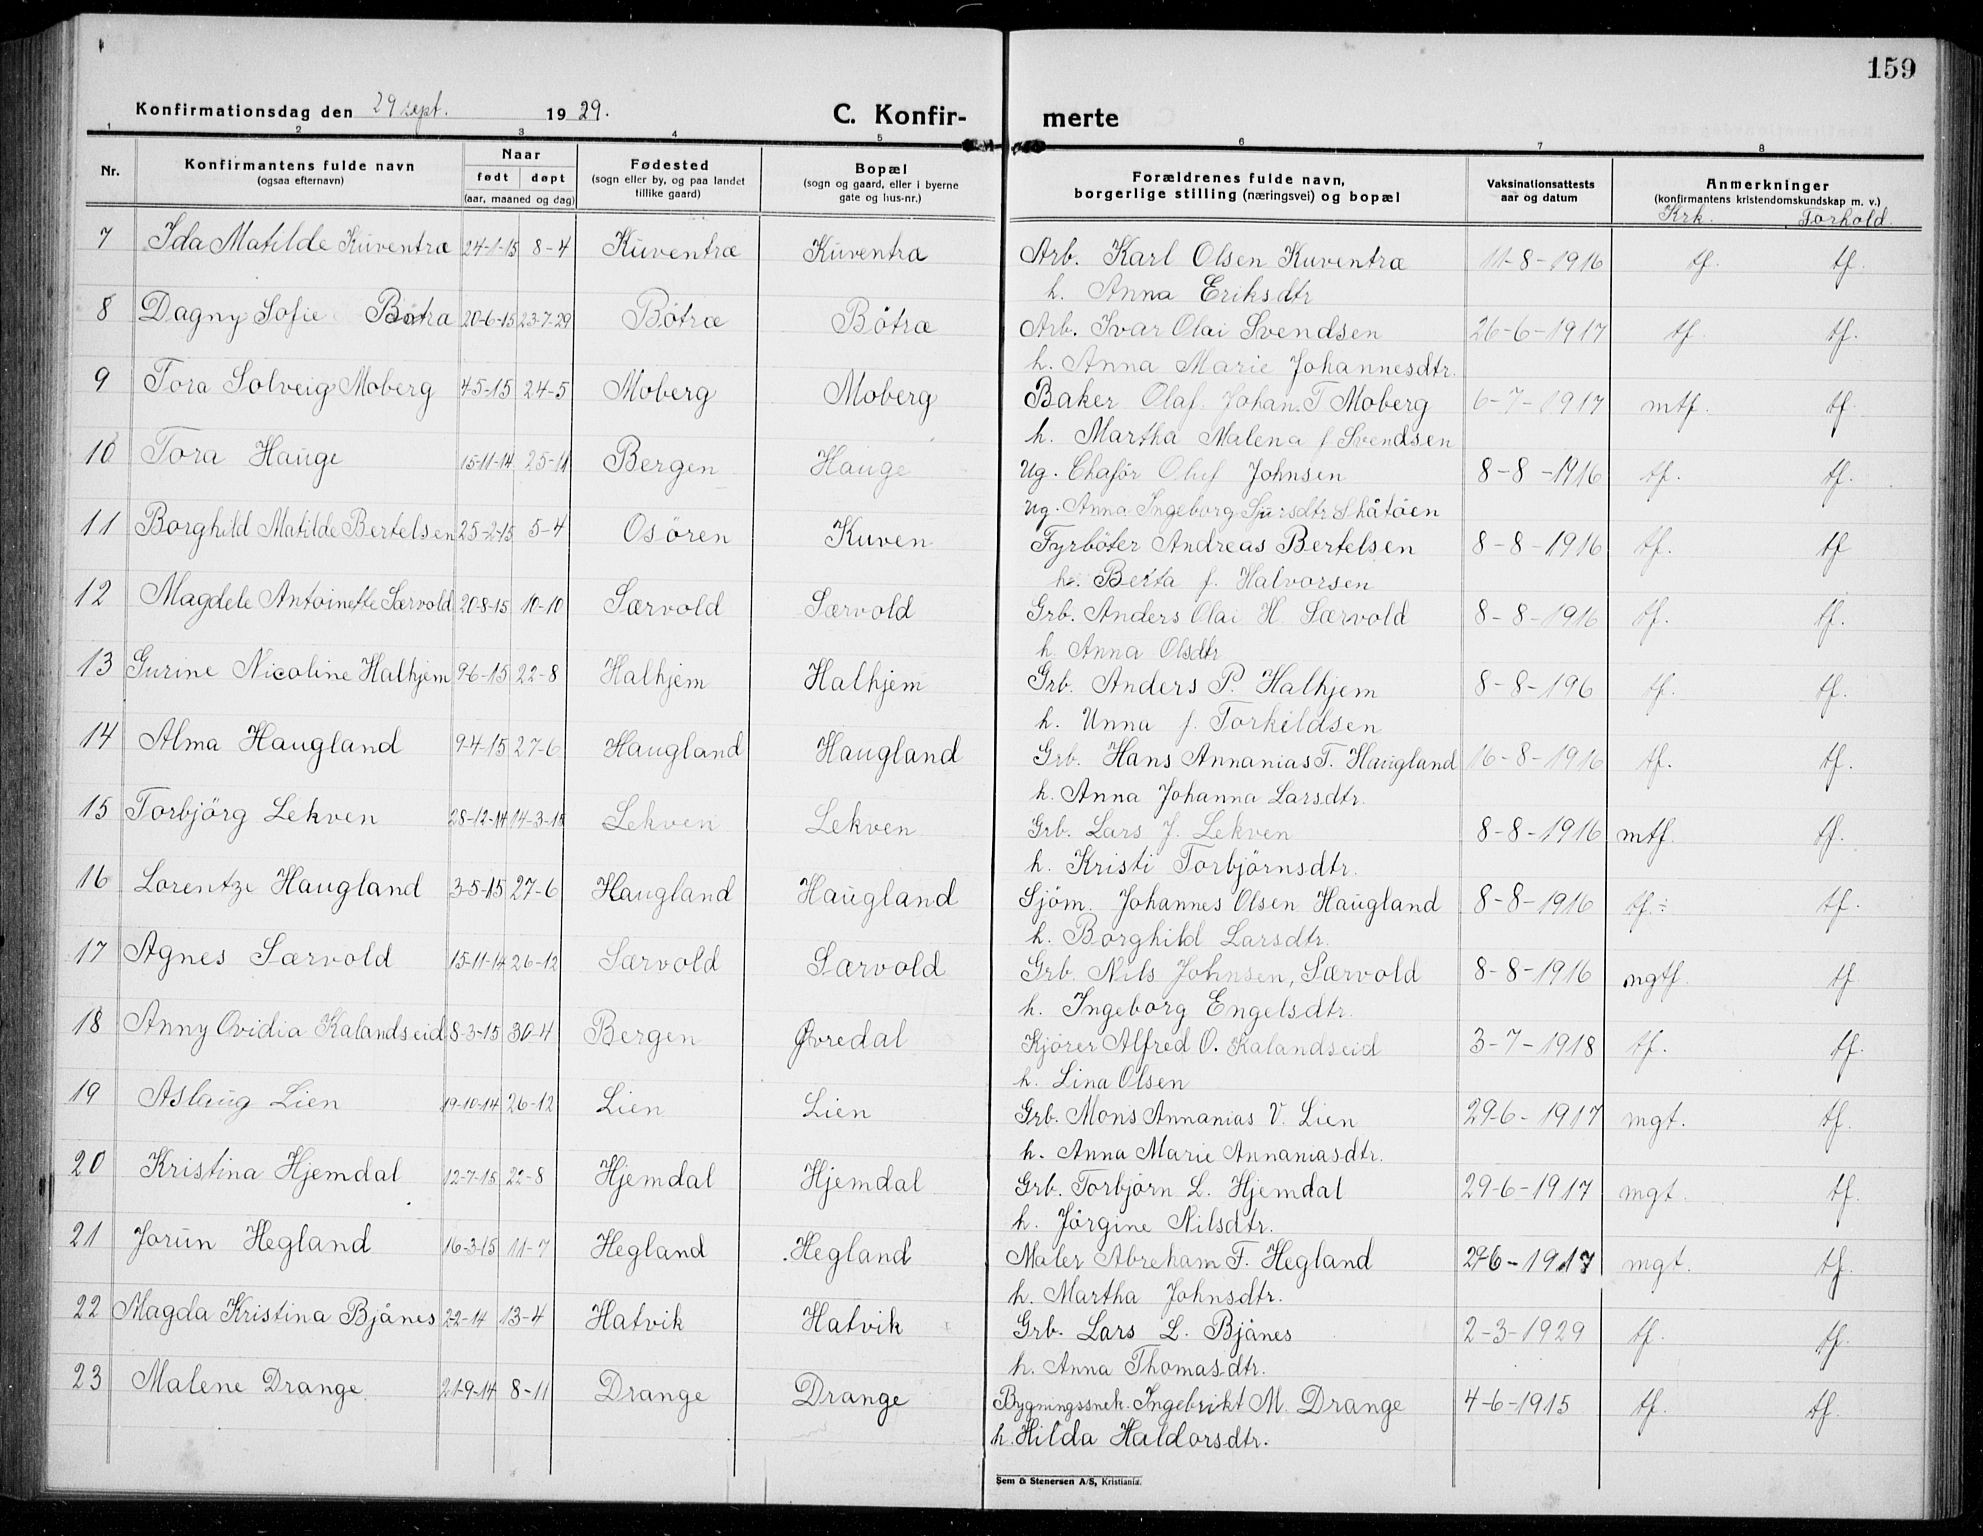 159
Konfirmationsdag den 29 sept. 1929.
C. Konfir-
merte
1 2 3 4 5 6 7 8
Nr.
Konfirmantens fulde navn
(ogsaa efternavn)
Naar
født døpt
(aar, maaned og dag)
Fødested
(sogn eller by, og paa landet
tillike gaard)
Bopæl
(sogn og gaard, eller i byerne
gate og hus-nr.)
Forældrenes fulde navn,
borgerlige stilling (næringsvei) og bopæl
Vaksinationsattests
aar og datum
Anmerkninger
(konfirmantens kristendomskundskap m. v.)
Krk. Forhold.
7 Ida Matilde Kuventræ 24-1-15 8-4 Kuventræ Kuventræ Arb. Karl Olsen Kuventræ 11-8-1916 tf. tf.
h. Anna Eriksdtr
8 Dagny Sofie Bøtra 20-6-15 23-7-29 Bötræ Bötræ Arb. Ivar Olai Svendsen 26-6-1917 tf. tf.
h. Anna Marie Johannesdtr.
9 Tora Solveig Moberg 4-5-15 24-5 Moberg Moberg Baker Olaf Johan T Moberg 6-7-1917 mtf. tf.
h. Martha Malena f Svendsen
10 Tora Hauge 15-11-14 25-11 Bergen Hauge Ug. Chafør Oluf Johnsen 8-8-1916 tf. tf.
Ug. Anna Ingeborg Sjursdtr Skåtöen
11 Borghild Matilde Bertelsen 25-2-15 5-4 Osören Kuven Fyrböter Andreas Bertelsen 8-8-1916 tf. tf
h. Berta f. Halvorsen
12 Magdele Antoinette Særvold 20-8-15 10-10 Særvold Særvold Grb. Anders Olai H. Særvold 8-8-1916 tf. tf.
h. Anna Olsdtr
13 Gurine Nicoline Halhjem 9-6-15 22-8 Halhjem Halhjem Grb. Anders P. Halhjem 8-8-196 tf. tf.
h. Unna f. Torkildsen
14 Alma Haugland 9-4-15 27-6 Haugland Haugland Grb. Hans Annanias T. Haugland 16-8-1916 tf. tf.
h. Anna Johanna Larsdtr.
15 Torbjörg Lekven 28-12-14 14-3-15 Lekven Lekven Grb. Lars J. Lekven 8-8-1916 mtf. tf.
h. Kristi Torbjörnsdtr.
16 Lorentze Haugland 3-5-15 27-6 Haugland Haugland Sjöm. Johannes Olsen Haugland 8-8-1916 tf. tf.
h. Borghild Larsdtr.
17 Agnes Særvold 15-11-14 26-12 Særvold Særvold Grb. Nils Johnsen, Særvold 8-8-1916 mgtf. tf
h. Ingeborg Engelsdtr.
18 Anny Ovidia Kalandseid 8-3-15 30-4 Bergen Øvredal Kjörer Alfred O. Kalandseid 3-7-1918 tf. tf.
h. Lina Olsen
19 Aslaug Lien 19-10-14 26-12 Lien Lien Grb. Mons Annanias V. Lien 29-6-1917 mgt. tf.
h. Anna Marie Annaniasdtr.
20 Kristina Hjemdal 12-7-15 22-8 Hjemdal Hjemdal Grb. Torbjørn L. Hjemdal 29-6-1917 mgt. tf.
h. Jörgine Nilsdtr.
21 Jorun Hegland 16-3-15 11-7 Hegland Hegland Maler Abreham T. Hegland 29-6-1917 mgt. tf.
h. Martha Johnsdtr.
22 Magda Kristina Bjånes 2-2-14 13-4 Hatvik Hatvik Grb. Lars L. Bjånes 2-3-1929 tf. tf.
h. Anna Thomasdtr.
23 Malene Drange 21-9-14 8-11 Drange Drange Bygningssnek. Ingebrikt M. Drange 4-6-1915 tf. tf.
h. Hilda Haldorsdtr.
Sem & Stenersen A/S, Kristiania.